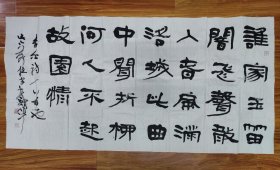 誰家玉笛
闇飛聲散
入春風滿
洛城此曲
中聞折柳
何人不起
故園情